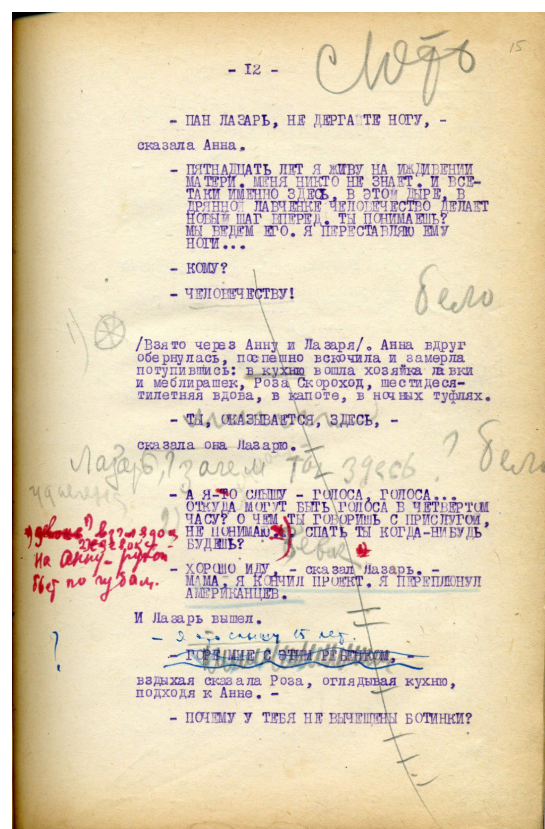 15
- 12 -
- ПАН ЛАЗАРЬ, НЕ ДЕРГАЙТЕ НОГУ, -
сказала Анна.
- ПЯТНАДЦАТЬ ЛЕТ Я ЖИВУ НА ИЖДИВЕНИИ
МАТЕРИ. МЕНЯ НИКТО НЕ ЗНАЕТ. И ВСЕ-
ТАКИ ИМЕННО ЗДЕСЬ, В ЭТОЙ ДЫРЕ, В
ДРЯННОЙ ЛАВЧЕНКЕ ЧЕЛОВЕЧЕСТВО ДЕЛАЕТ
НОВЫЙ ШАГ ВПЕРЕД. ТЫ ПОНИМАЕШЬ?
МЫ ВЕДЕМ ЕГО. Я ПЕРЕСТАВЛЯЮ ЕМУ
НОГИ...
- КОМУ?
- ЧЕЛОВЕЧЕСТВУ!
бело
1)
/Взято через Анну и Лазаря/. Анна вдруг
обернулась, поспешно вскочила и замерла
потупившись: в кухню вошла хозяйка лавки
и меблирашек, Роза Скороход, шестидеся-
тилетняя вдова, в капоте, в ночных туфлях.
- ТЫ, ОКАЗЫВАЕТСЯ, ЗДЕСЬ, -
сказала она Лазарю.
Лазарь, зачем ты здесь? бело
- А Я-ТО СЛЫШУ - ГОЛОСА, ГОЛОСА...
ОТКУДА МОГУТ БЫТЬ ГОЛОСА В ЧЕТВЕРТОМ
ЧАСУ? О ЧЕМ ТЫ ГОВОРИШЬ С ПРИСЛУГОМ,
НЕ ПОНИМАЮ. СПАТЬ ТЫ КОГДА-НИБУДЬ
БУДЕШЬ?
на Анну - рукой
бьет по губам.
- ХОРОШО ИДУ, - сказал Лазарь. -
МАМА, Я КОНЧИЛ ПРОЕКТ. Я ПЕРЕПЛЮНУЛ
АМЕРИКАНЦЕВ.
И Лазарь вышел.
- Я это слышу 15 лет.
?
- ГОРЕ МНЕ С ЭТИМ РЕБЕНКОМ, -
вздыхая сказала Роза, оглядывая кухню,
подходя к Анне. -
- ПОЧЕМУ У ТЕБЯ НЕ ВЫЧЕЩЕНЫ БОТИНКИ?